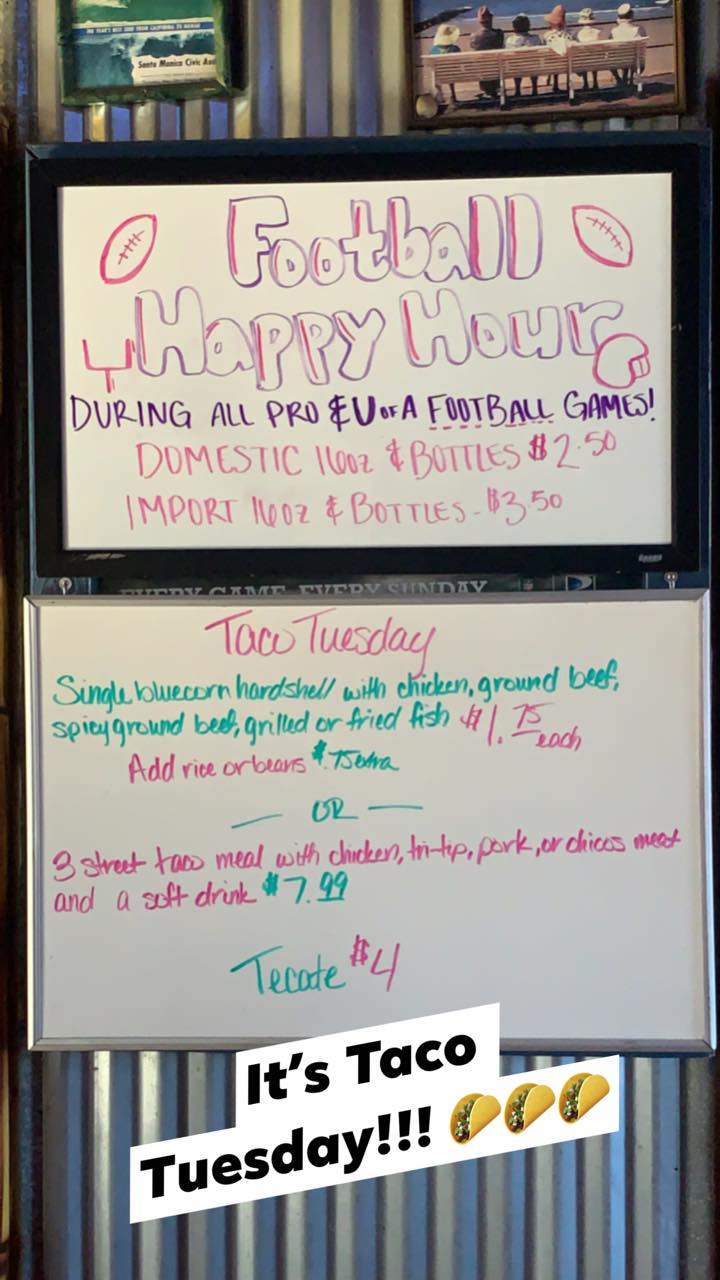 THE YEAR'S BEST SURF FROM CALIFORNIA TO HAWAII
Santa Monica Civic Aud
Football
Happy Hour
DURING ALL PRO & U OF A FOOTBALL GAMES!
DOMESTIC 16oz & BOTTLES $2.50
IMPORT 16oz & BOTTLES - $3.50
EVERY GAME. EVERY SUNDAY
Taco Tuesday
Single bluecorn hardshell with chicken, ground beef,
spicy ground beef, grilled or fried fish $1.75 each
Add rice or beans $.75 extra
— OR —
3 street taco meal with chicken, tri-tip, pork, or chicos meat
and a soft drink $7.99
Tecate $4
It's Taco
Tuesday!!! 🌮🌮🌮